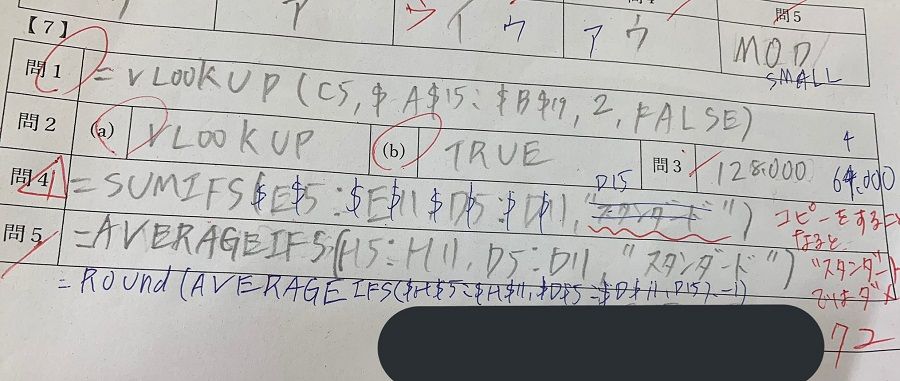 問5
ア ウ イ ウ ア ウ MOD
SMALL
【7】
問1 =VLOOKUP(C5,$A$15:$B$19,2,FALSE)
問2 (a) VLOOKUP (b) TRUE 問3 128.000 64.000
4
問4 =SUMIFS($E$5:$E$11 $D$5:$D$11,"スタンダード")
D15
コピーをすること
なると
"スタンダード
ではダメ
問5 =AVERAGEIFS(H5:H11,D5:D11,"スタンダード")
=ROUnd(AVERAGEIFS($H$5:$H$11,$D$5:$D$11,D15),-1)
72